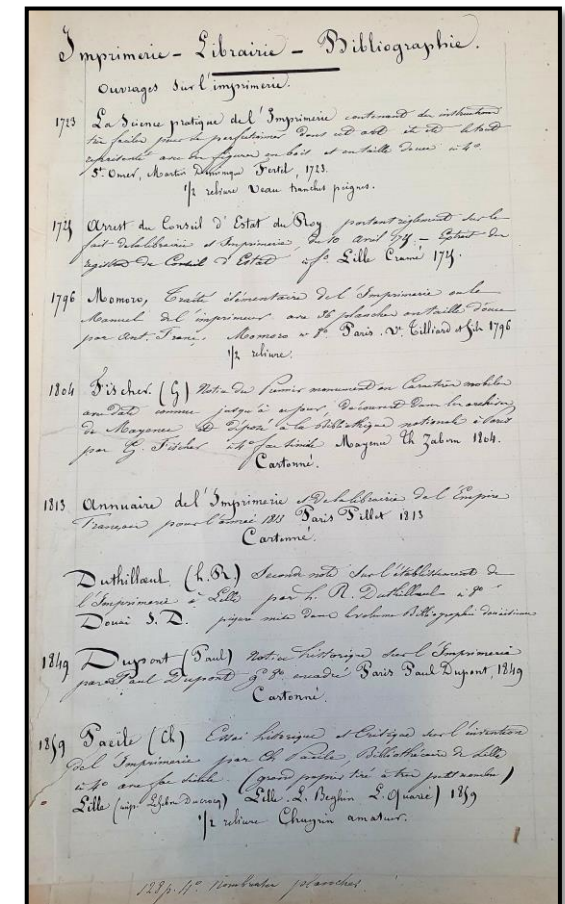 Imprimerie – Librairie – Bibliographie.
Ouvrages sur l'imprimerie.
1723 La Science pratique de l'Imprimerie contenant des instructions
très faciles pour se perfectionner dans cet art
représenté avec des figures en bois et en taille douce in 4°.
St. Omer, Martin Dominique Fertel, 1723.
1/2 reliure Veau tranches peignes.
Arrest du Conseil d'Estat du Roy portant règlement sur le
fait de la librairie et Imprimerie, du 10 avril – Extrait des
registres du Conseil d'Estat in f°. Lille Cramé
1796 Momoro, Traité élémentaire de l'Imprimerie ou le
Manuel de l'imprimeur avec 36 planches en taille douce
par Ant. Franç. Momoro in 8°. Paris. Ve. Tilliard et fils 1796
1/2 reliure.
1804 Fischer. (G) Notice du Premier monument en Caractères mobiles
avec date connue jusqu'à ce jour, découvert dans les archives
de Mayence et déposé à la bibliothèque nationale à Paris
par G. Fischer in 4° fac simile Mayence Th Zabern 1804.
Cartonné.
1813 Annuaire de l'Imprimerie et de la librairie de l'Empire
Français pour l'année 1813 Paris Pillet 1813
Cartonné.
Duthillœul (h. R.) Seconde note sur l'établissement de
l'Imprimerie à Lille par h. R. Duthillœul in 8°
Douai S. D. mise dans le volume Bibliographie douaisienne
1849 Dupont (Paul) Notice historique sur l'Imprimerie
par Paul Dupont gd 8°. encadré Paris Paul Dupont, 1849
Cartonné.
1859 Paeile (Ch) Essai historique et Critique sur l'invention
de l'Imprimerie par Ch Paeile, Bibliothécaire de Lille
in 4° avec fac simile. (grand papier tiré à très petit nombre)
Lille (imp. Lefebvre Ducrocq) Lille. L. Beghin L. Quarré) 1859
1/2 reliure Chagrin amateur.
128 p. 4° nombreuses planches